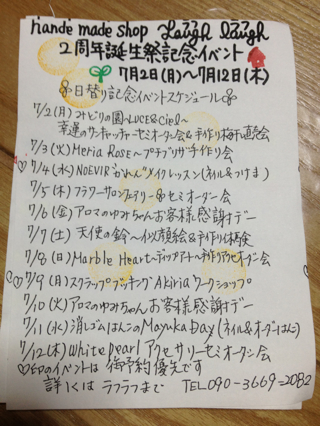 hande made shop Laugh laugh
2周年誕生祭記念イベント
7月2日(月)~7月12日(木)
日替り記念イベントスケジュール
7/2(月)みどりの園~LUCE&Ciel~
幸運のサンキャッチャーセミオーダー会&手作り梅干直売会
7/3(火)Meria Rose~プチプリザ手作り会
7/4(水)NOEVIR"かれん"メイクレッスン(ネイル&つけま)
7/5(木)フラワーサロンフェアリー セミオーダー会
7/6(金)アロマのゆみちゃんお客様感謝デー
7/7(土)天使の鈴~似顔絵&手作り体験
7/8(日)Marble Heart~デコアート~手作りアクセオーダー会
♡7/9(月)スクラップブッキングAkiriaワークショップ
7/10(火)アロマのゆみちゃんお客様感謝デー
♡7/11(水)消しゴムはんこのMayuka Day(ネイル&オーダーはんこ)
7/12(木)White pearl アクセサリーセミオーダー会
♡印のイベントは御予約優先です
詳しくはラフラフまで TEL090-3669-2082